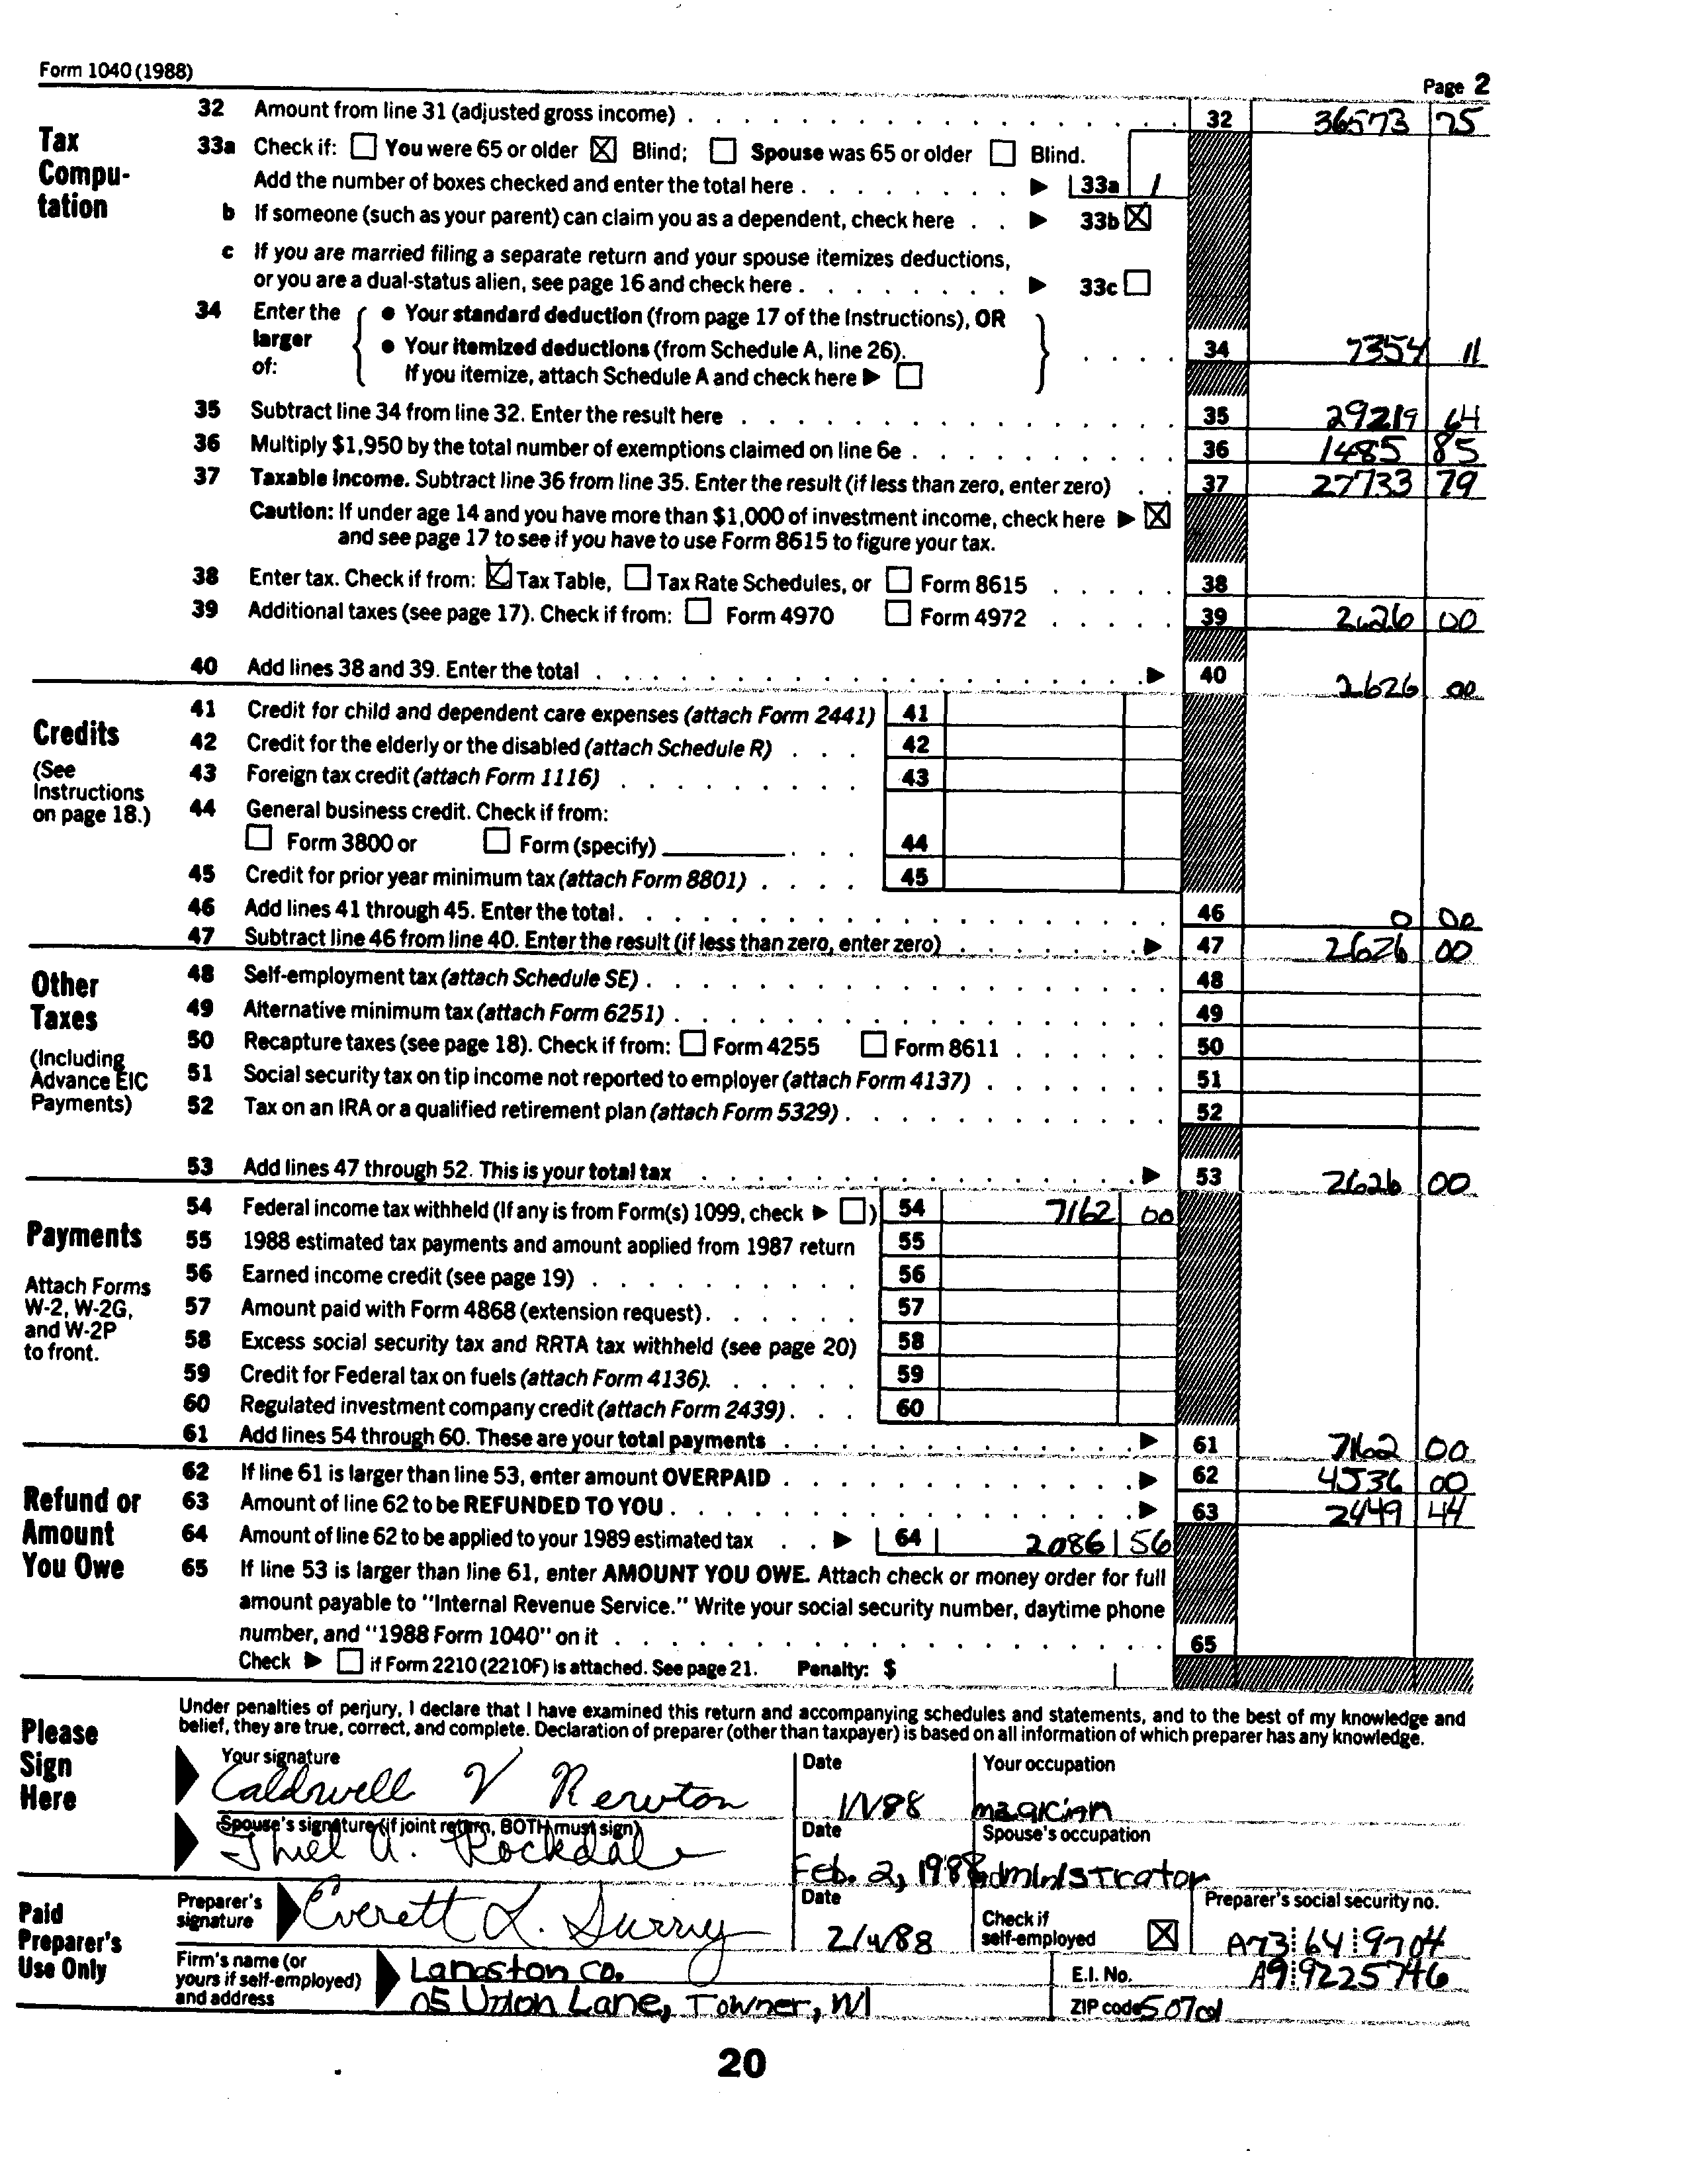 Form 1040 (1988) Page 2
Tax Computation
32 Amount from line 31 (adjusted gross income) 32 36573 75
33a Check if: ☐ You were 65 or older ☒ Blind; ☐ Spouse was 65 or older ☐ Blind.
Add the number of boxes checked and enter the total here ▶ 33a 1
b If someone (such as your parent) can claim you as a dependent, check here ▶ 33b ☒
c If you are married filing a separate return and your spouse itemizes deductions,
or you are a dual-status alien, see page 16 and check here ▶ 33c ☐
34 Enter the larger of:
● Your standard deduction (from page 17 of the Instructions), OR
● Your itemized deductions (from Schedule A, line 26).
If you itemize, attach Schedule A and check here ▶ ☐
34 7354 11
35 Subtract line 34 from line 32. Enter the result here 35 29219 64
36 Multiply $1,950 by the total number of exemptions claimed on line 6e 36 1485 85
37 Taxable income. Subtract line 36 from line 35. Enter the result (if less than zero, enter zero) 37 27733 79
Caution: If under age 14 and you have more than $1,000 of investment income, check here ▶ ☒
and see page 17 to see if you have to use Form 8615 to figure your tax.
38 Enter tax. Check if from: ☒ Tax Table, ☐ Tax Rate Schedules, or ☐ Form 8615 38
39 Additional taxes (see page 17). Check if from: ☐ Form 4970 ☐ Form 4972 39 2626 00
40 Add lines 38 and 39. Enter the total ▶ 40 2626 00
Credits
(See Instructions on page 18.)
41 Credit for child and dependent care expenses (attach Form 2441) 41
42 Credit for the elderly or the disabled (attach Schedule R) 42
43 Foreign tax credit (attach Form 1116) 43
44 General business credit. Check if from:
☐ Form 3800 or ☐ Form (specify) 44
45 Credit for prior year minimum tax (attach Form 8801) 45
46 Add lines 41 through 45. Enter the total 46 0 00
47 Subtract line 46 from line 40. Enter the result (if less than zero, enter zero) ▶ 47 2626 00
Other Taxes
(Including Advance EIC Payments)
48 Self-employment tax (attach Schedule SE) 48
49 Alternative minimum tax (attach Form 6251) 49
50 Recapture taxes (see page 18). Check if from: ☐ Form 4255 ☐ Form 8611 50
51 Social security tax on tip income not reported to employer (attach Form 4137) 51
52 Tax on an IRA or a qualified retirement plan (attach Form 5329) 52
53 Add lines 47 through 52. This is your total tax ▶ 53 2626 00
Payments
Attach Forms W-2, W-2G, and W-2P to front.
54 Federal income tax withheld (If any is from Form(s) 1099, check ▶ ☐) 54 7162 00
55 1988 estimated tax payments and amount applied from 1987 return 55
56 Earned income credit (see page 19) 56
57 Amount paid with Form 4868 (extension request) 57
58 Excess social security tax and RRTA tax withheld (see page 20) 58
59 Credit for Federal tax on fuels (attach Form 4136) 59
60 Regulated investment company credit (attach Form 2439) 60
61 Add lines 54 through 60. These are your total payments ▶ 61 7162 00
Refund or Amount You Owe
62 If line 61 is larger than line 53, enter amount OVERPAID ▶ 62 4536 00
63 Amount of line 62 to be REFUNDED TO YOU ▶ 63 2449 44
64 Amount of line 62 to be applied to your 1989 estimated tax ▶ 64 2086 56
65 If line 53 is larger than line 61, enter AMOUNT YOU OWE. Attach check or money order for full
amount payable to "Internal Revenue Service." Write your social security number, daytime phone
number, and "1988 Form 1040" on it 65
Check ▶ ☐ if Form 2210 (2210F) is attached. See page 21. Penalty: $
Please Sign Here
Under penalties of perjury, I declare that I have examined this return and accompanying schedules and statements, and to the best of my knowledge and
belief, they are true, correct, and complete. Declaration of preparer (other than taxpayer) is based on all information of which preparer has any knowledge.
Your signature Date Your occupation
Caldwell V Newton 1/1/88 magician
Spouse's signature (if joint return, BOTH must sign) Date Spouse's occupation
Thiel A. Rockdale Feb. 2, 1988 administrator
Paid Preparer's Use Only
Preparer's signature Everett L. Surry Date 2/4/88 Check if self-employed ☒ Preparer's social security no. A73 64 9704
Firm's name (or yours if self-employed) and address Langston Co. E.I. No. A9 9225746
05 Union Lane, Towner, WI ZIP code 50701
20